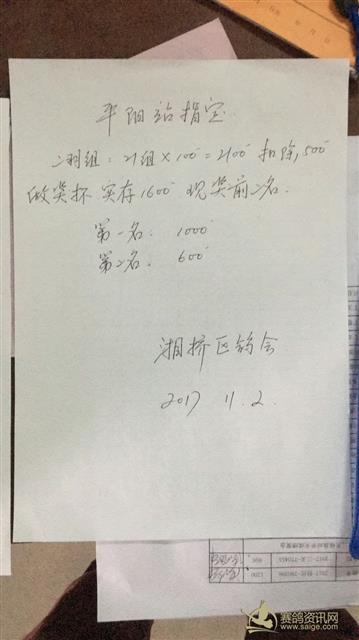 平阳站指定
二羽组：21组×100=2100 扣除,500
做奖杯 实存1600 现奖前二名.
第一名. 1000
第二名. 600
湘桥区鸽会
2017 11.2.
1200
赛鸽资讯网
www.saige.com